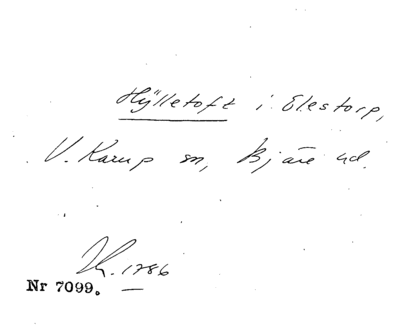 Hÿlletoft i Elestorp,
V. Karup sn, Bjäre hd.
Jh. 1786
Nr 7099.